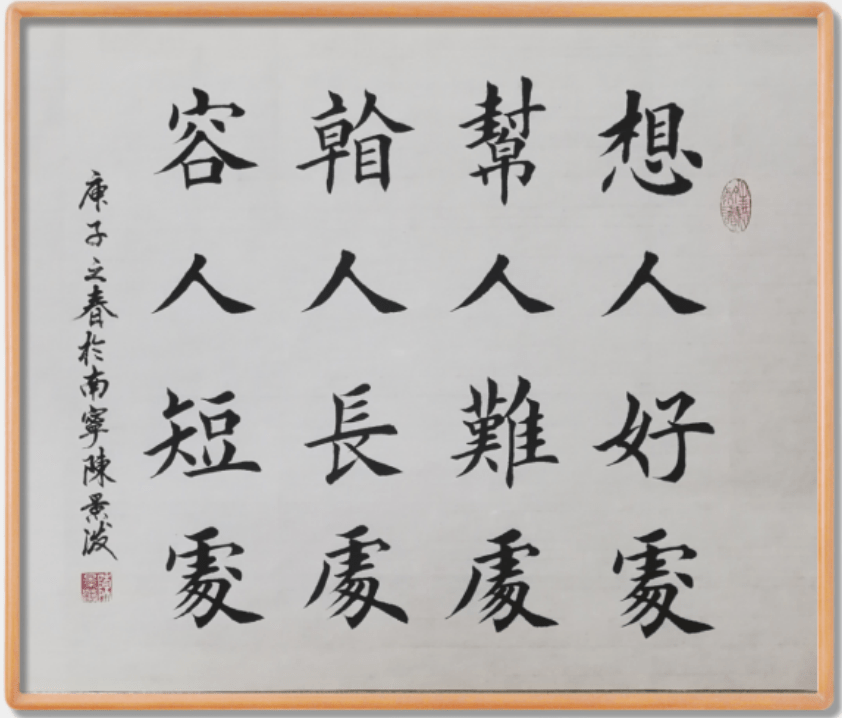 想人好處
幫人難處
看人長處
容人短處
庚子之春於南寧陳景